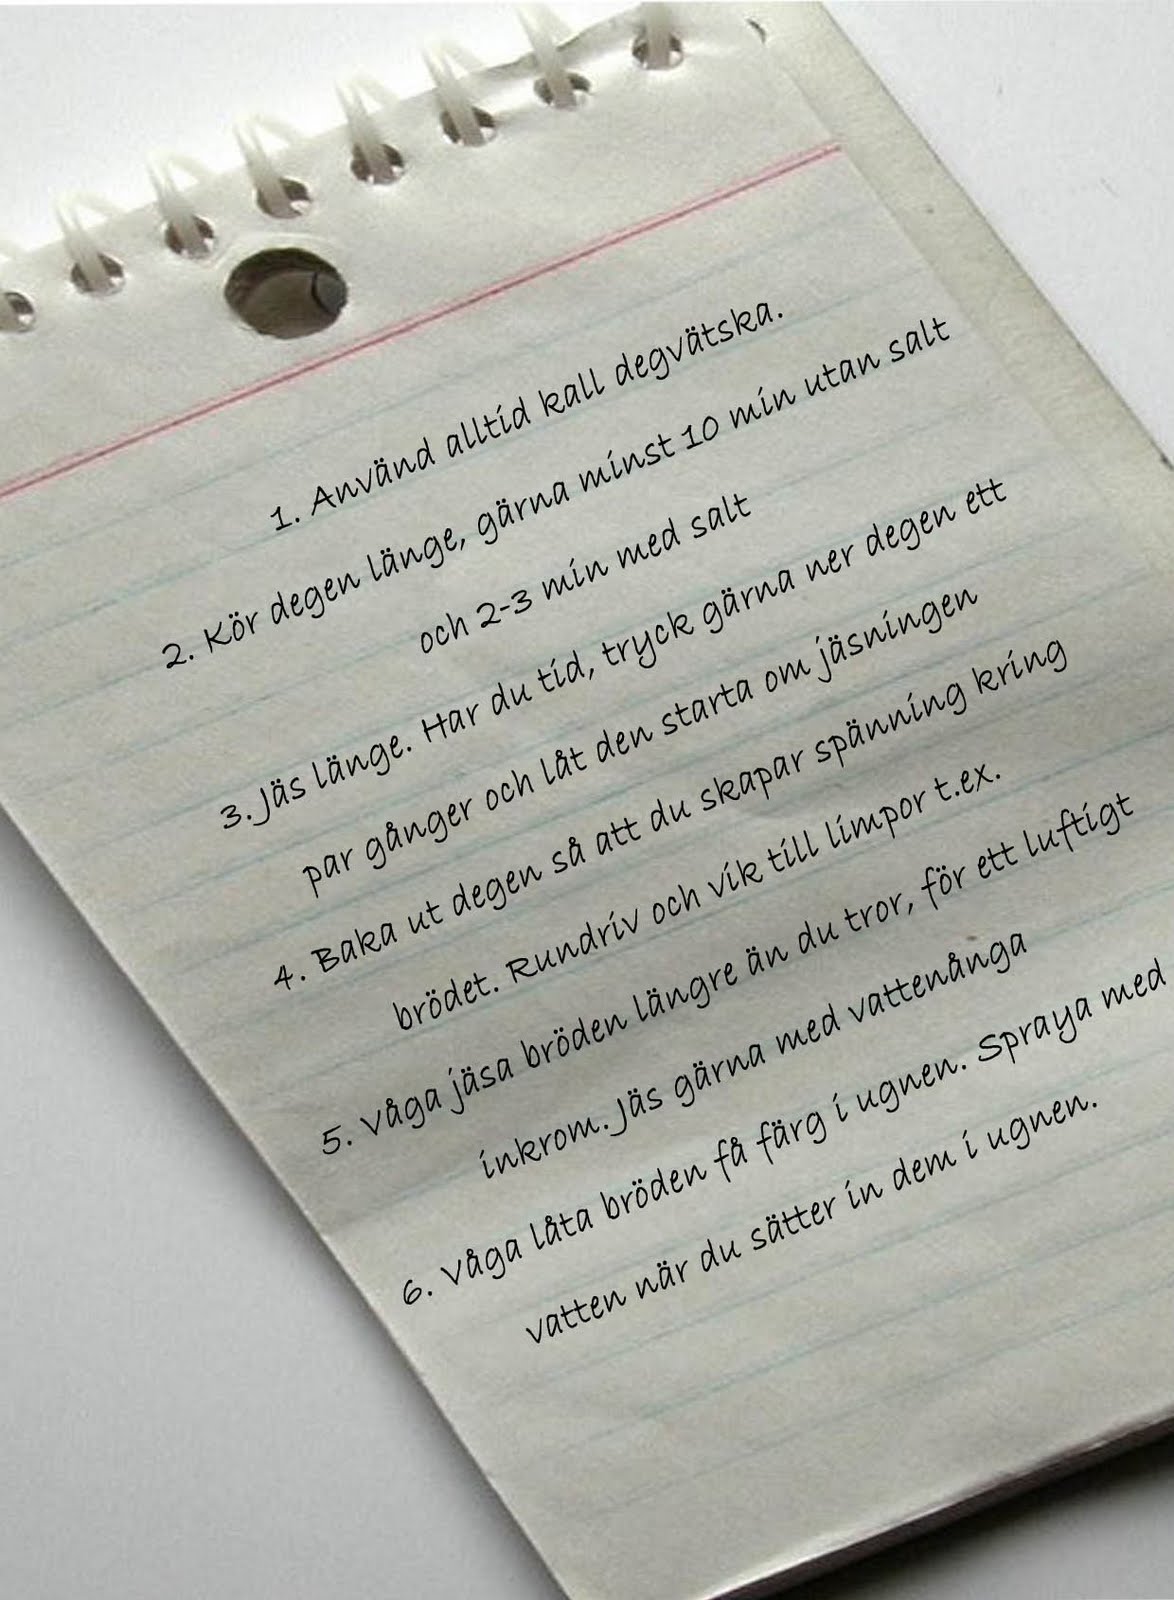 1. Använd alltid kall degvätska.
2. Kör degen länge, gärna minst 10 min utan salt
och 2-3 min med salt
3. Jäs länge. Har du tid, tryck gärna ner degen ett
par gånger och låt den starta om jäsningen
4. Baka ut degen så att du skapar spänning kring
brödet. Rundriv och vik till limpor t.ex.
5. Våga jäsa bröden längre än du tror, för ett luftigt
inkrom. Jäs gärna med vattenånga
6. Våga låta bröden få färg i ugnen. Spraya med
vatten när du sätter in dem i ugnen.